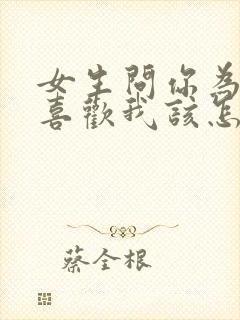 女生問你為
喜歡我該怎
蔡全根